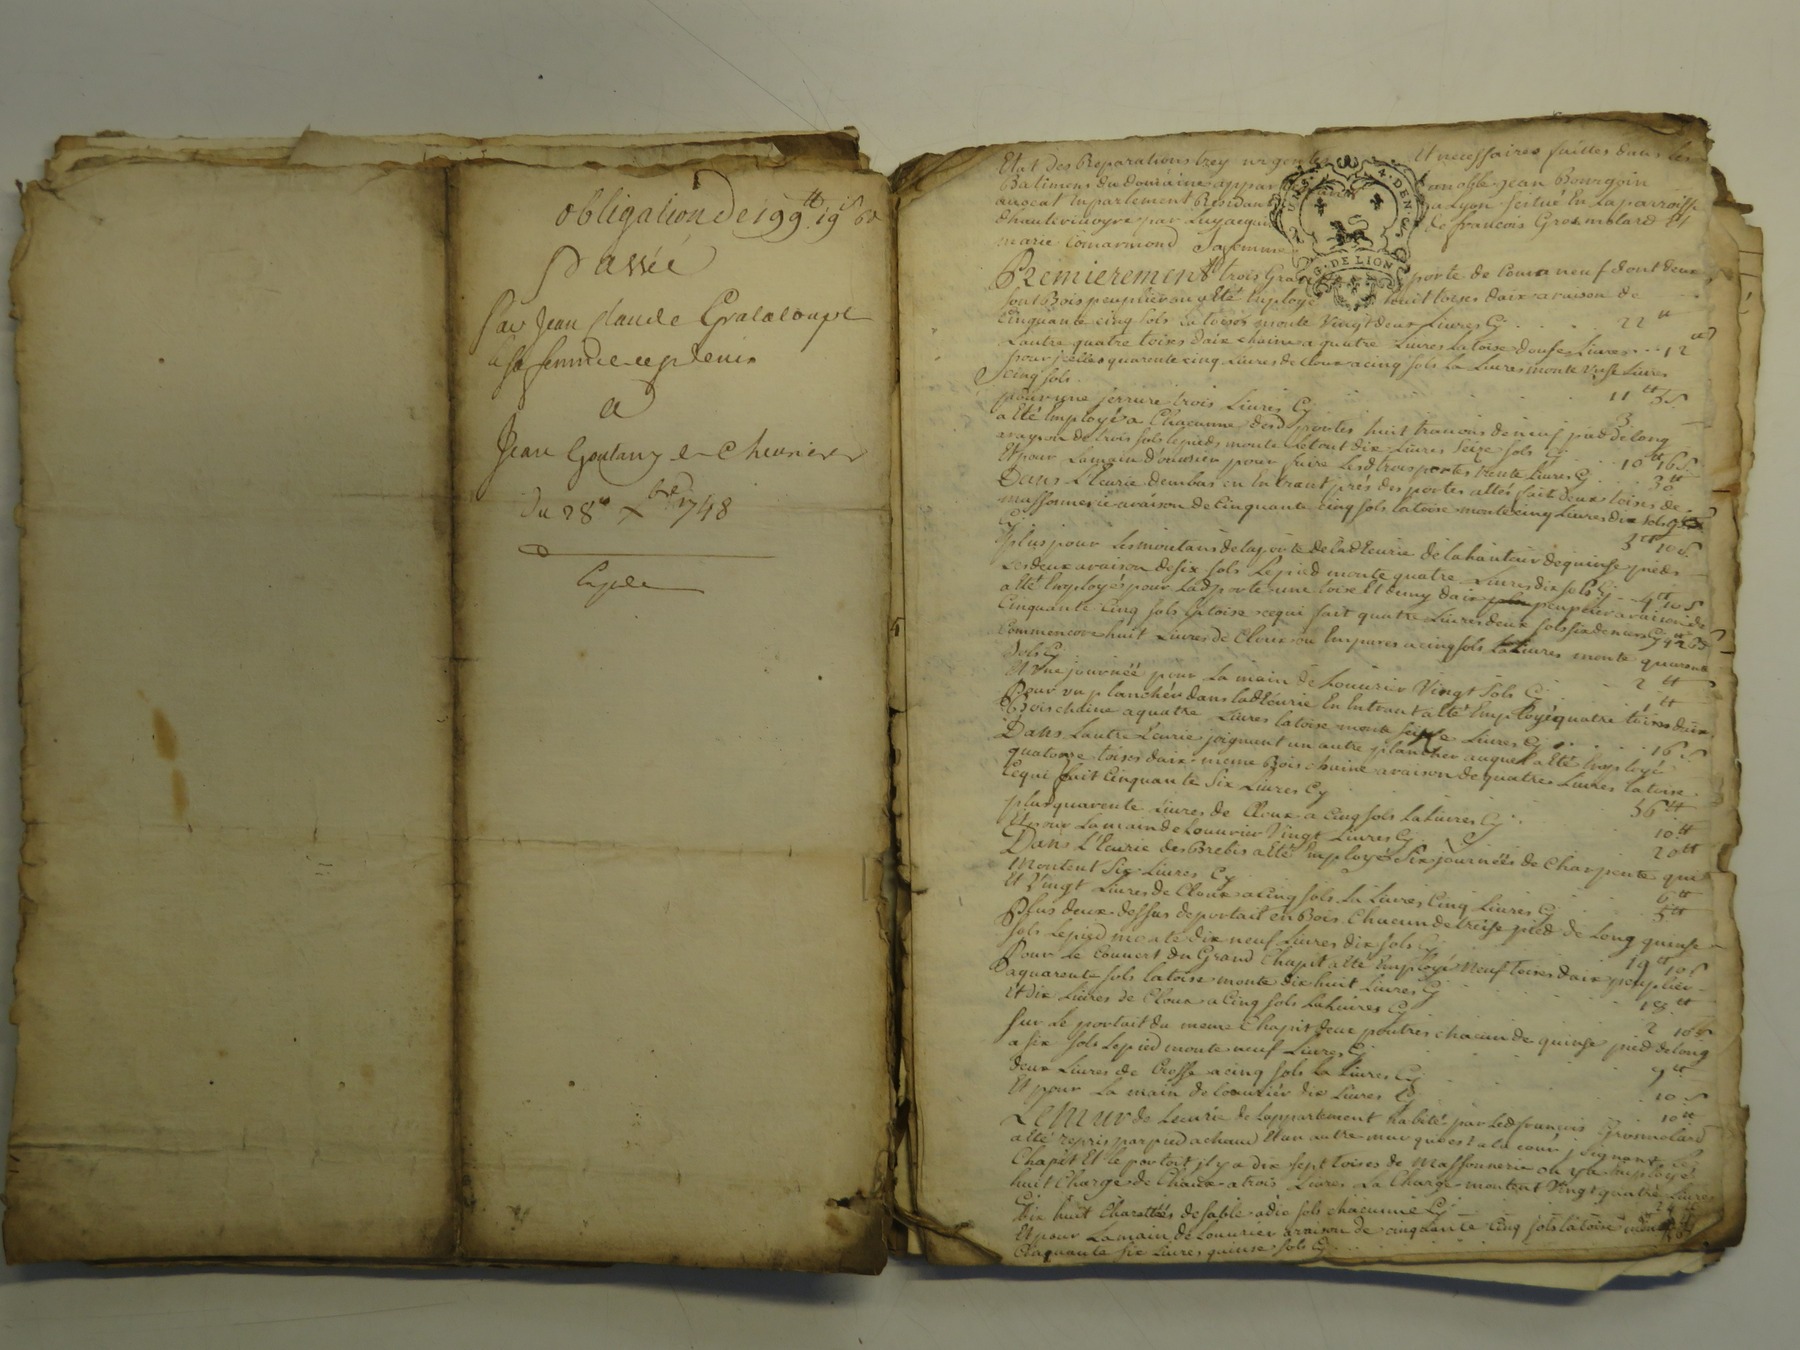 obligation de 199 tt 19 s 6 d
Passée
Par Jean Claude Grataloupt
a sa femme
a
Jean Goutany
Du 28e Xbre 1748
Etat des Reparations trey urgentes Et necessaires faittes dans les
Batimens du domaine appartenant a noble Jean Bourgoin
auocat En parlement Residant a Lyon scitué En La parroisse
d'hauterivoyre par Luy acquis de francois Grosmolard Et
marie Comarmond Sa femme
Premierement trois Grandes porte de Cour a neuf dont deux
sont Bois peuplier ou a Eté Employé huit toises daix a raison de
Cinquante cinq sols la toises monte Vingt deux Liures Cy 22 tt
Lautre quatre toises daix chaine a quatre Liures La toise doufe Liures 12 tt
pour jcelles quarente cinq Liures de Cloux a cinq sols La Liures monte Vnse Liures
Cinq sols 11 tt 5 s
pour une serrure trois Liures Cy 3
a Eté Employé a Chacunne desd portes huit trauons de neuf pied de long
a raison de trois sols le pieds monte Le tout dix Liures Seize sols Cy 10 tt 16 s
Et pour La main d'ouurier pour faire Lesd trois portes trente Liures Cy 30 tt
Dans L'Ecurie dembas en Entrant prés des portes a Eté fait deux toises de
massonnerie a raison de Cinquante cinq sols la toise monte cinq Liures dix sols
Cy 5 tt 10 s
plus pour Les montans de la porte de lad Ecurie de la hauteur de quinse pieds
Les deux a raison de six sols Le pied monte quatre Liures dix sols Cy 4 tt 10 s
a Eté Employé pour Lad porte une toise Et demy daix peuplier a raison de
Cinquante Cinq sols la toise ce qui fait quatre Liures deux sols six deniers Cy 4 2 6 d
Comm encore huit Liures de Cloux ou Empares a cinq sols La Liures monte quarente
sols Cy 2 tt
Et Vne journée pour La main de Louurier Vingt sols Cy 1 tt
Pour vn plancher dans lad Ecurie En Entrant a Eté Employé quatre toises daix
Bois chaine a quatre Liures la toise monte seize Liures Cy 16
Dans Lautre Ecurie joignant un autre plancher auquel a Eté Employé
quatorze toises daix meme Bois chaine a raison de quatre Liures la toise
Ce qui fait Cinquante Six Liures Cy 56 tt
plus quarente Liures de Cloux a cinq sols La Liures Cy 10 tt
Et pour La main de Louurier Vingt Liures Cy 20 tt
Dans L'Ecurie des Brebis a Eté Employé Six journées de Charpente qui
Montent Six Liures Cy 6 tt
Et Vingt Liures de Cloux a Cinq sols La Liures Cinq Liures Cy 5 tt
Plus deux dessus de portait en Bois Chacun de treise pied de Long quinse
sols Le pied monte dix neuf Liures dix sols Cy 19 tt 10 s
Pour Le Couuert du Grand Chapit a Eté Employé Neuf toises daix peuplier
a quarente sols la toise monte dix huit Liures Cy 18 tt
Et dix Liures de Cloux a Cinq sols La Liures Cy 2 10 s
sur Le portait du meme Chapit deux poutres chacun de quinse pied de long
a six sols Le pied monte neuf Liures Cy 9 tt
deux Liures de Crosse a cinq sols La Liures Cy 10 s
Et pour La main de Louurier dix Liures Cy 10 tt
Le mur de Lecurie de Lappartement habité par Led francois Grosmolard
a Eté repris par pied a chaud Et un autre mur qui est a la cour joignant Les
Chapit Et le portait jl y a dix sept toises de Massonnerie ou y a Employé
huit Charge de Chaux a trois Liures La Charge montent Vingt quatre Liures
Cy 24 tt
Dix huit Charettées de sable a dix sols chacunne Cy
Et pour La main de Louurier a raison de cinquante cinq sols la toise monte
Cinquante six Liures quinse sols Cy
G. DE LION